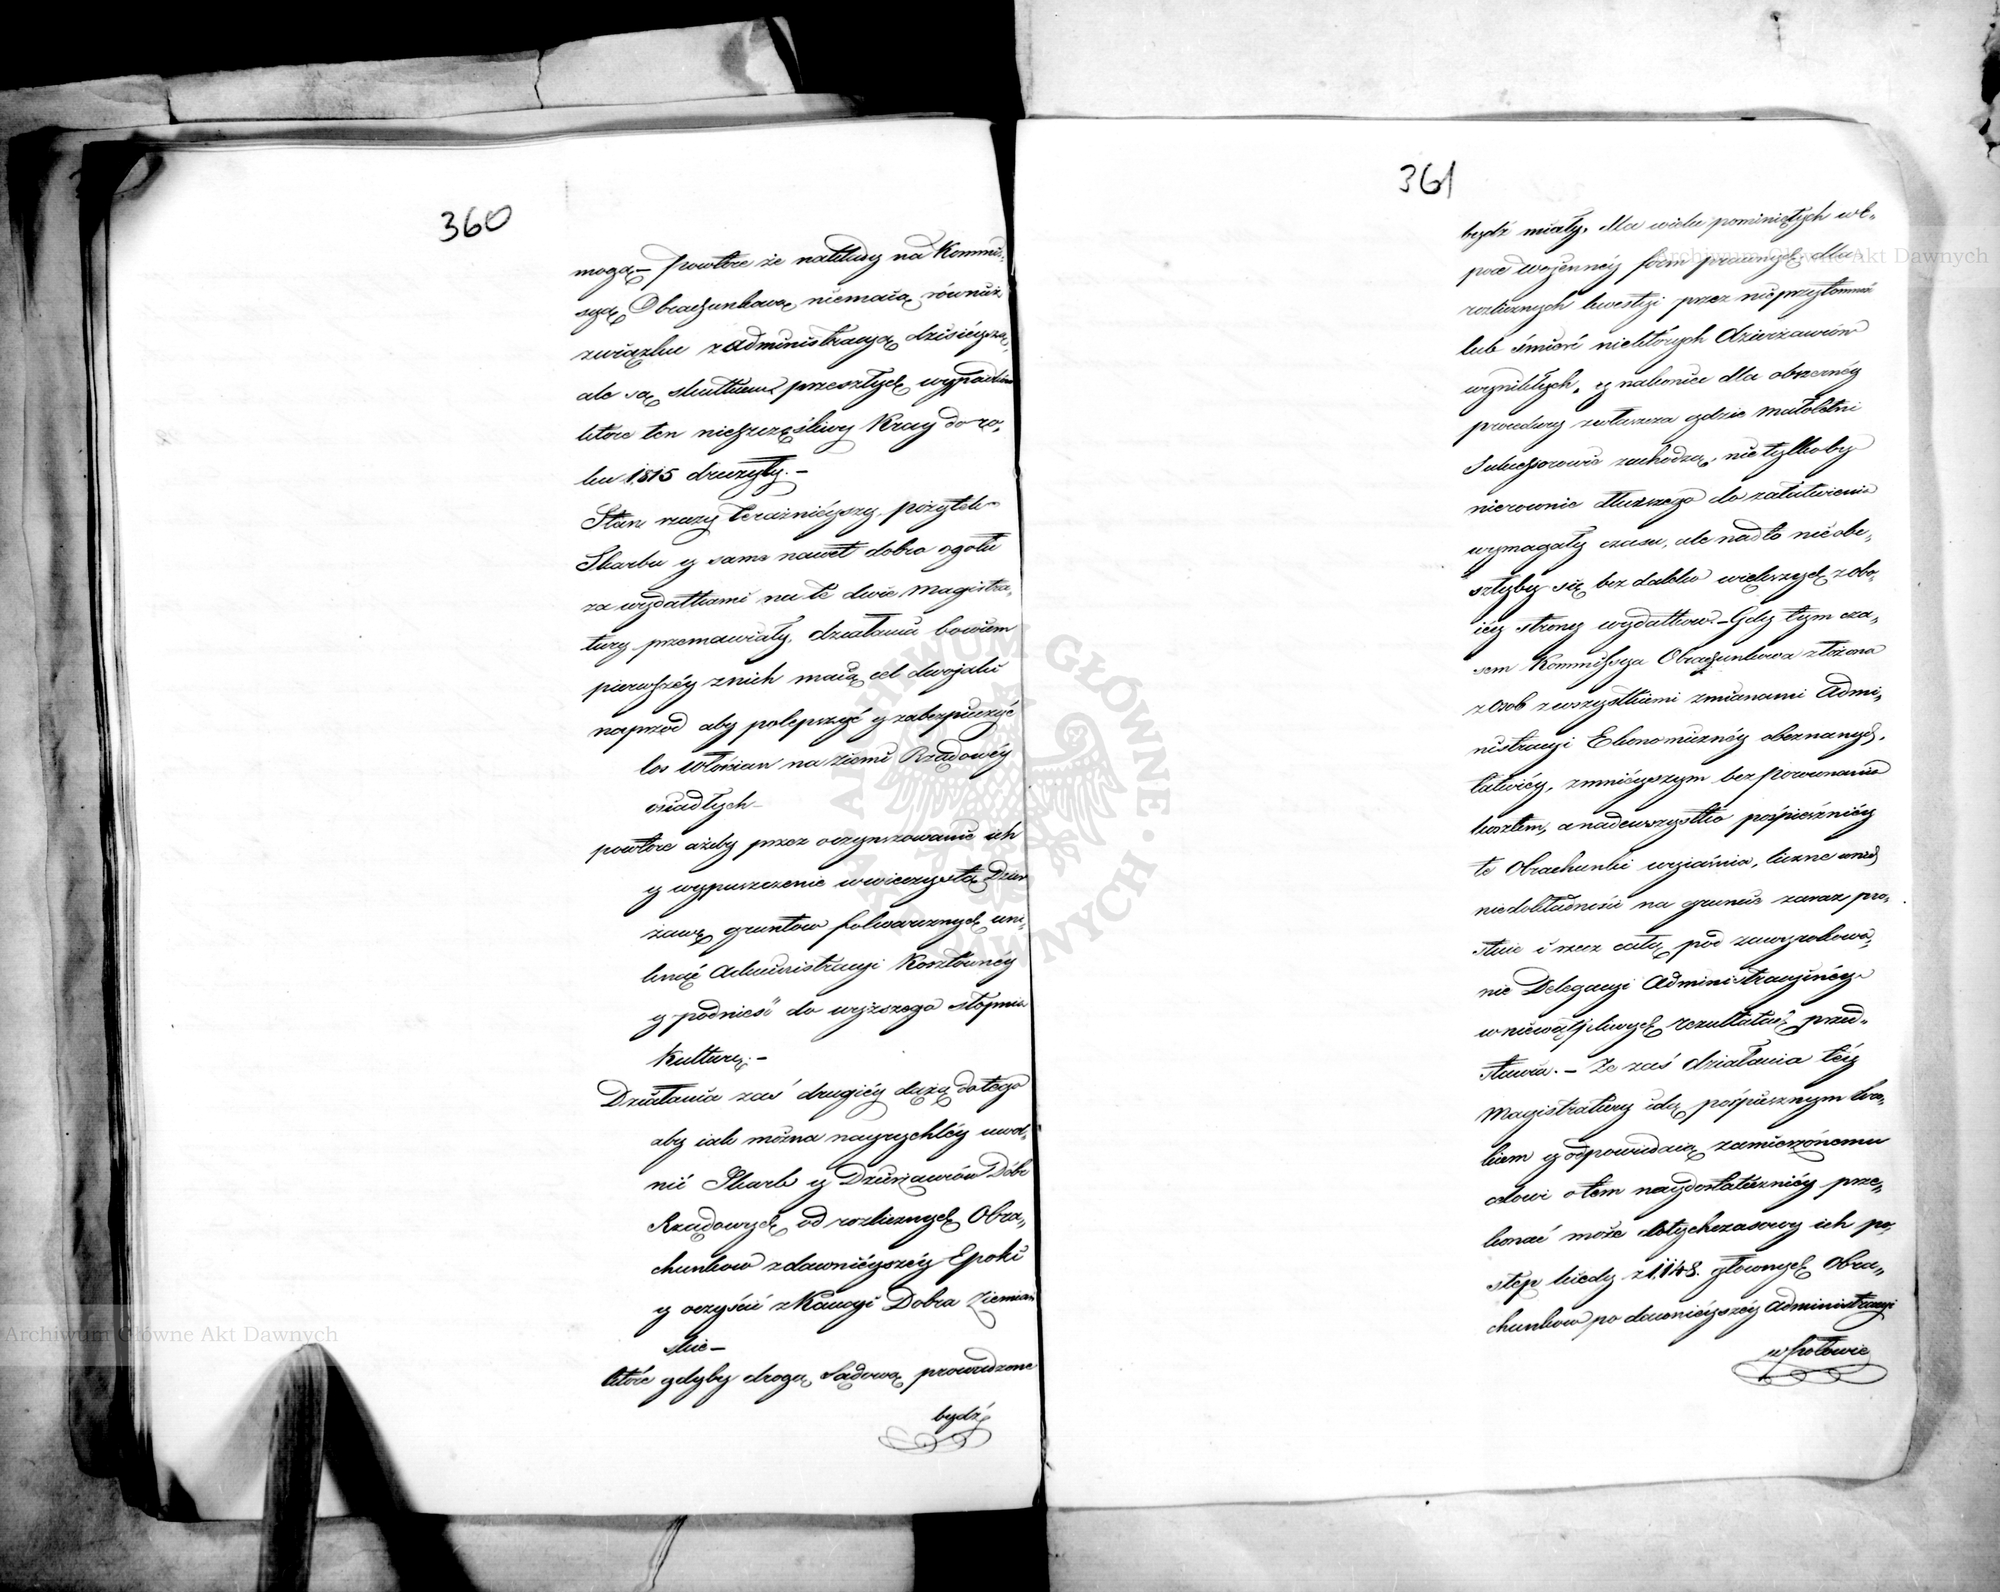 360
mogą – powtóre że nakłady na Kommis-
syą Obrachunkową niemaią równuż
związku z administracyą dzisieyszą,
ale są skutkiem przeszłych wypadków
które ten nieszczęśliwy Kray do ro-
ku 1815 dręczyły. –
Stan rzeczy teraźnieyszy, pożytek
Skarbu y samo nawet dobro ogółu
za wydatkami na te dwie Magistra-
tury przemawiały, działania bowiem
pierwszéy z nich maią cel dwojaki
naprzód aby polepszyć y zabezpieczyć
los Włościan na ziemi Rządowéy
osiadłych –
powtóre ażeby przez oczynszowanie ich
y wypuszczenie w wieczystą Dzier
żawę gruntów folwarcznych uni-
knąć Administracyi Kosztownéy
y podnieść do wyższego stopnia
Kulturę. –
Działania zaś drugiéy dążą do tego
aby iak można nayrychléy uwol-
nić Skarb y Dzierżawców Dóbr
Rządowych od rozlicznych Obra-
chunków z dawniéyszéy Epoki
y oczyścić z Kaucyi Dobra Ziemiań
skie –
które gdyby drogą Sądową prowadzone
bydź
361
bydź miały, dla wielu pominiętych w E-
poce wojennéy form prawnych, dla
rozlicznych kwestyi przez nieprzytomność
lub śmierć niektórych Dzierżawców
wynikłych, y nakoniec dla obszernéy
procedury zwłaszcza gdzie małoletni
Sukcessorowie zachodzą, nietylkoby
nierównie dłuższego do załatwienia
wymagały czasu, ale nadto nieobe-
szłyby się bez daleko większych z obo-
iéy strony wydatków. – Gdy tym cza-
sem Kommissya Obrachunkowa złożona
z osób z wszystkiemi zmianami Admi-
nistracyi Ekonomicznéy obeznanych,
łatwiéy, zmnieyszym bez porównania
kosztem, a nadewszystko pośpieszniéy
te Obrachunki wyiaśnia, liczne w nich
niedokładności na gruncie zaraz pro-
stuie i rzecz całą pod zawyrokowa-
nie Delegacyi Administracyinéy
w niewątpliwych rezultatach przed-
stawia. – Że zaś działania téy
Magistratury idą pośpiesznym kro-
kiem y odpowiadaią zamierzonemu
celowi o tem naydostateczniéy prze-
konać może dotychczasowy ich po-
stęp kiedy z 1,148. głównych Obra-
chunków po dawniéyszéy Administracyi
w połowie
Archiwum Główne Akt Dawnych
Archiwum Główne Akt Dawnych
ARCHIWUM GŁÓWNE AKT DAWNYCH